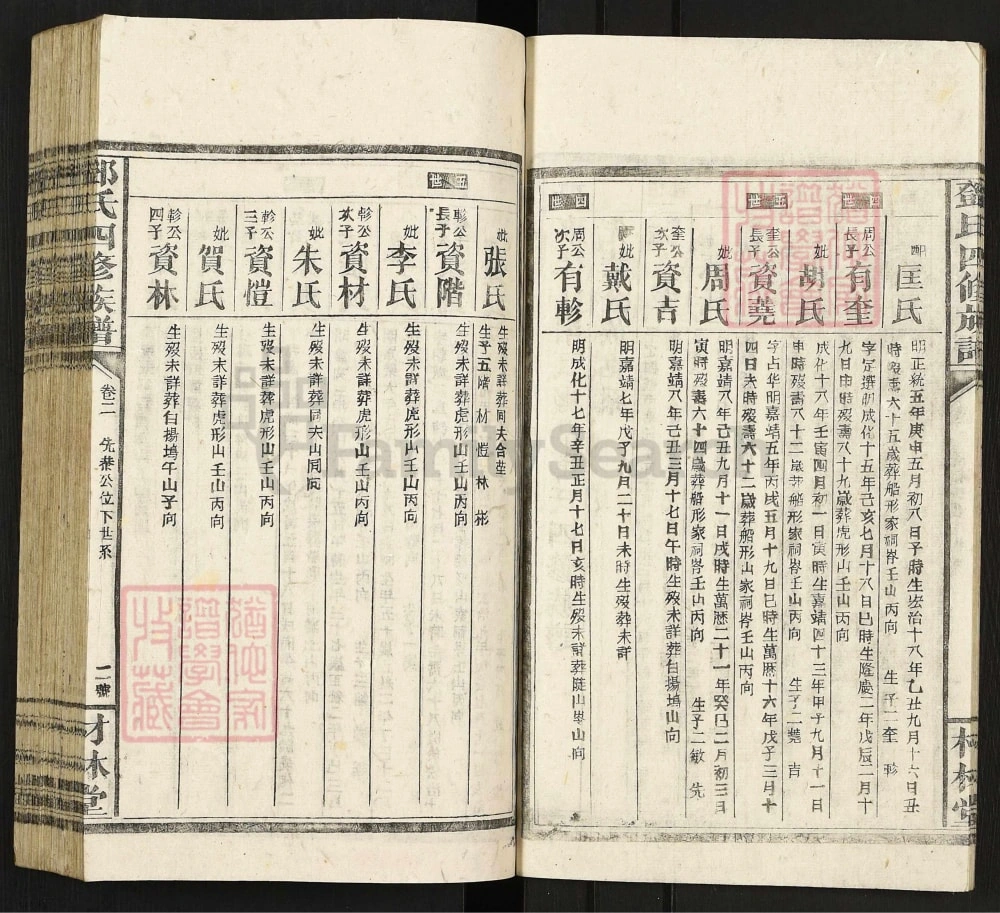 鄧氏四修族譜
配
匡氏
明正統五年庚申五月初八日子時生宏治十八年乙丑九月十六日丑
時歿壽六十五歲葬船形家祠峇壬山丙向 生子二奎 軫
四世
周公長子
有奎
字定選明成化十五年己亥七月十八日巳時生隆慶二年戊辰二月十
九日申時歿壽八十九歲葬虎形山壬山丙向
妣
胡氏
成化十八年壬寅四月初一日寅時生嘉靖四十三年甲子九月十一日
申時歿壽八十二歲葬船形家祠峇壬山丙向 生子二堯 吉
五世
奎公長子
資堯
字占华明嘉靖五年丙戌五月十九日巳時生萬厯十六年戊子三月十
四日未時歿壽六十二歲葬船形山家祠峇壬山丙向
妣
周氏
明嘉靖八年己丑九月十一日戌時生萬厯二十一年癸巳二月初三日
寅時歿壽六十四歲葬船形家祠峇壬山丙向 生子二敏 先
奎公次子
資吉
明嘉靖八年己丑三月十七日午時生歿未詳葬白揚塢山向
妣
戴氏
明嘉靖七年戊子九月二十日未時生歿葬未詳
四世
周公次子
有軫
明成化十七年辛丑正月十七日亥時生歿未詳葬 山 山向
妣
張氏
生歿未詳葬同夫合塋
生子五 階 材 愷 林 彬
五世
軫公長子
資階
生歿未詳葬虎形山壬山丙向
妣
李氏
生歿未詳葬虎形山壬山丙向
軫公次子
資材
生歿未詳葬虎形山壬山丙向
妣
朱氏
生歿未詳葬同夫山同向
軫公三子
資愷
生歿未詳葬虎形山壬山丙向
妣
賀氏
生歿未詳葬虎形山壬山丙向
軫公四子
資林
生歿未詳葬白揚塢午山子向
鄧氏四修族譜
卷二 先恭公位下世系
二號
FamilySearch